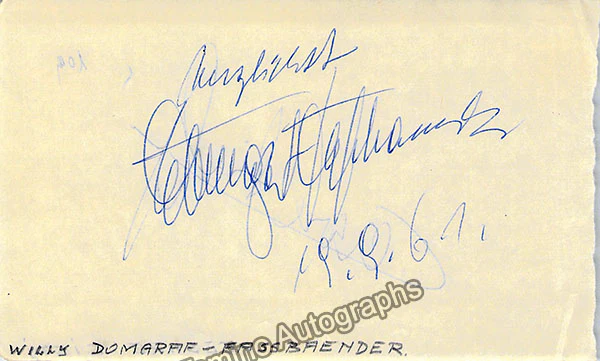 herzlichst
Domgraf Fassbaender
19.9.61.
WILLY DOMGRAF-FASSBAENDER.
Tamino Autographs